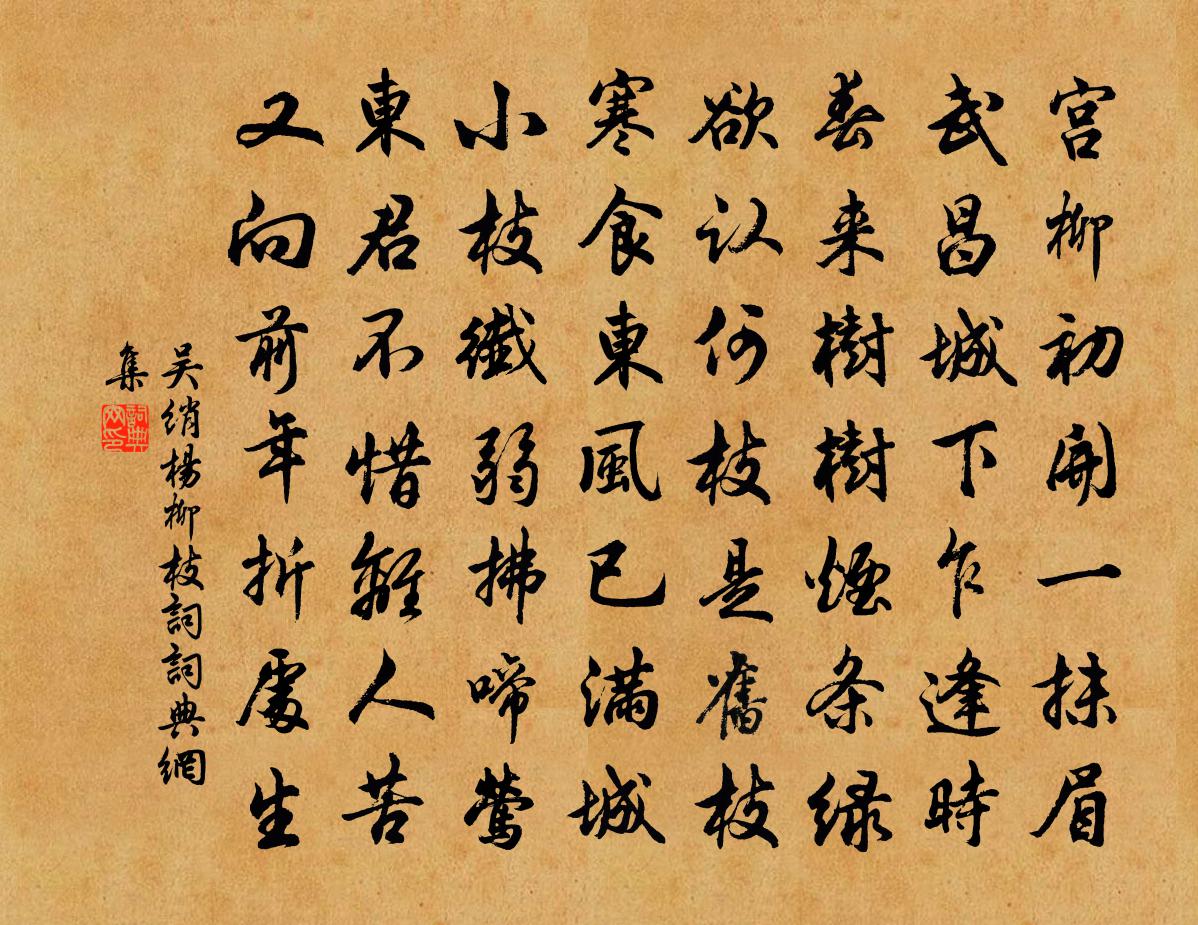 宫柳初開一抹眉
武昌城下乍逢時
春来樹樹煙条绿
欲认何枝是舊枝
寒食東風已滿城
小枝纖弱拂啼鶯
東君不惜離人苦
又向前年折處生
吴绡楊柳枝詞詞典網
集
詞典網印